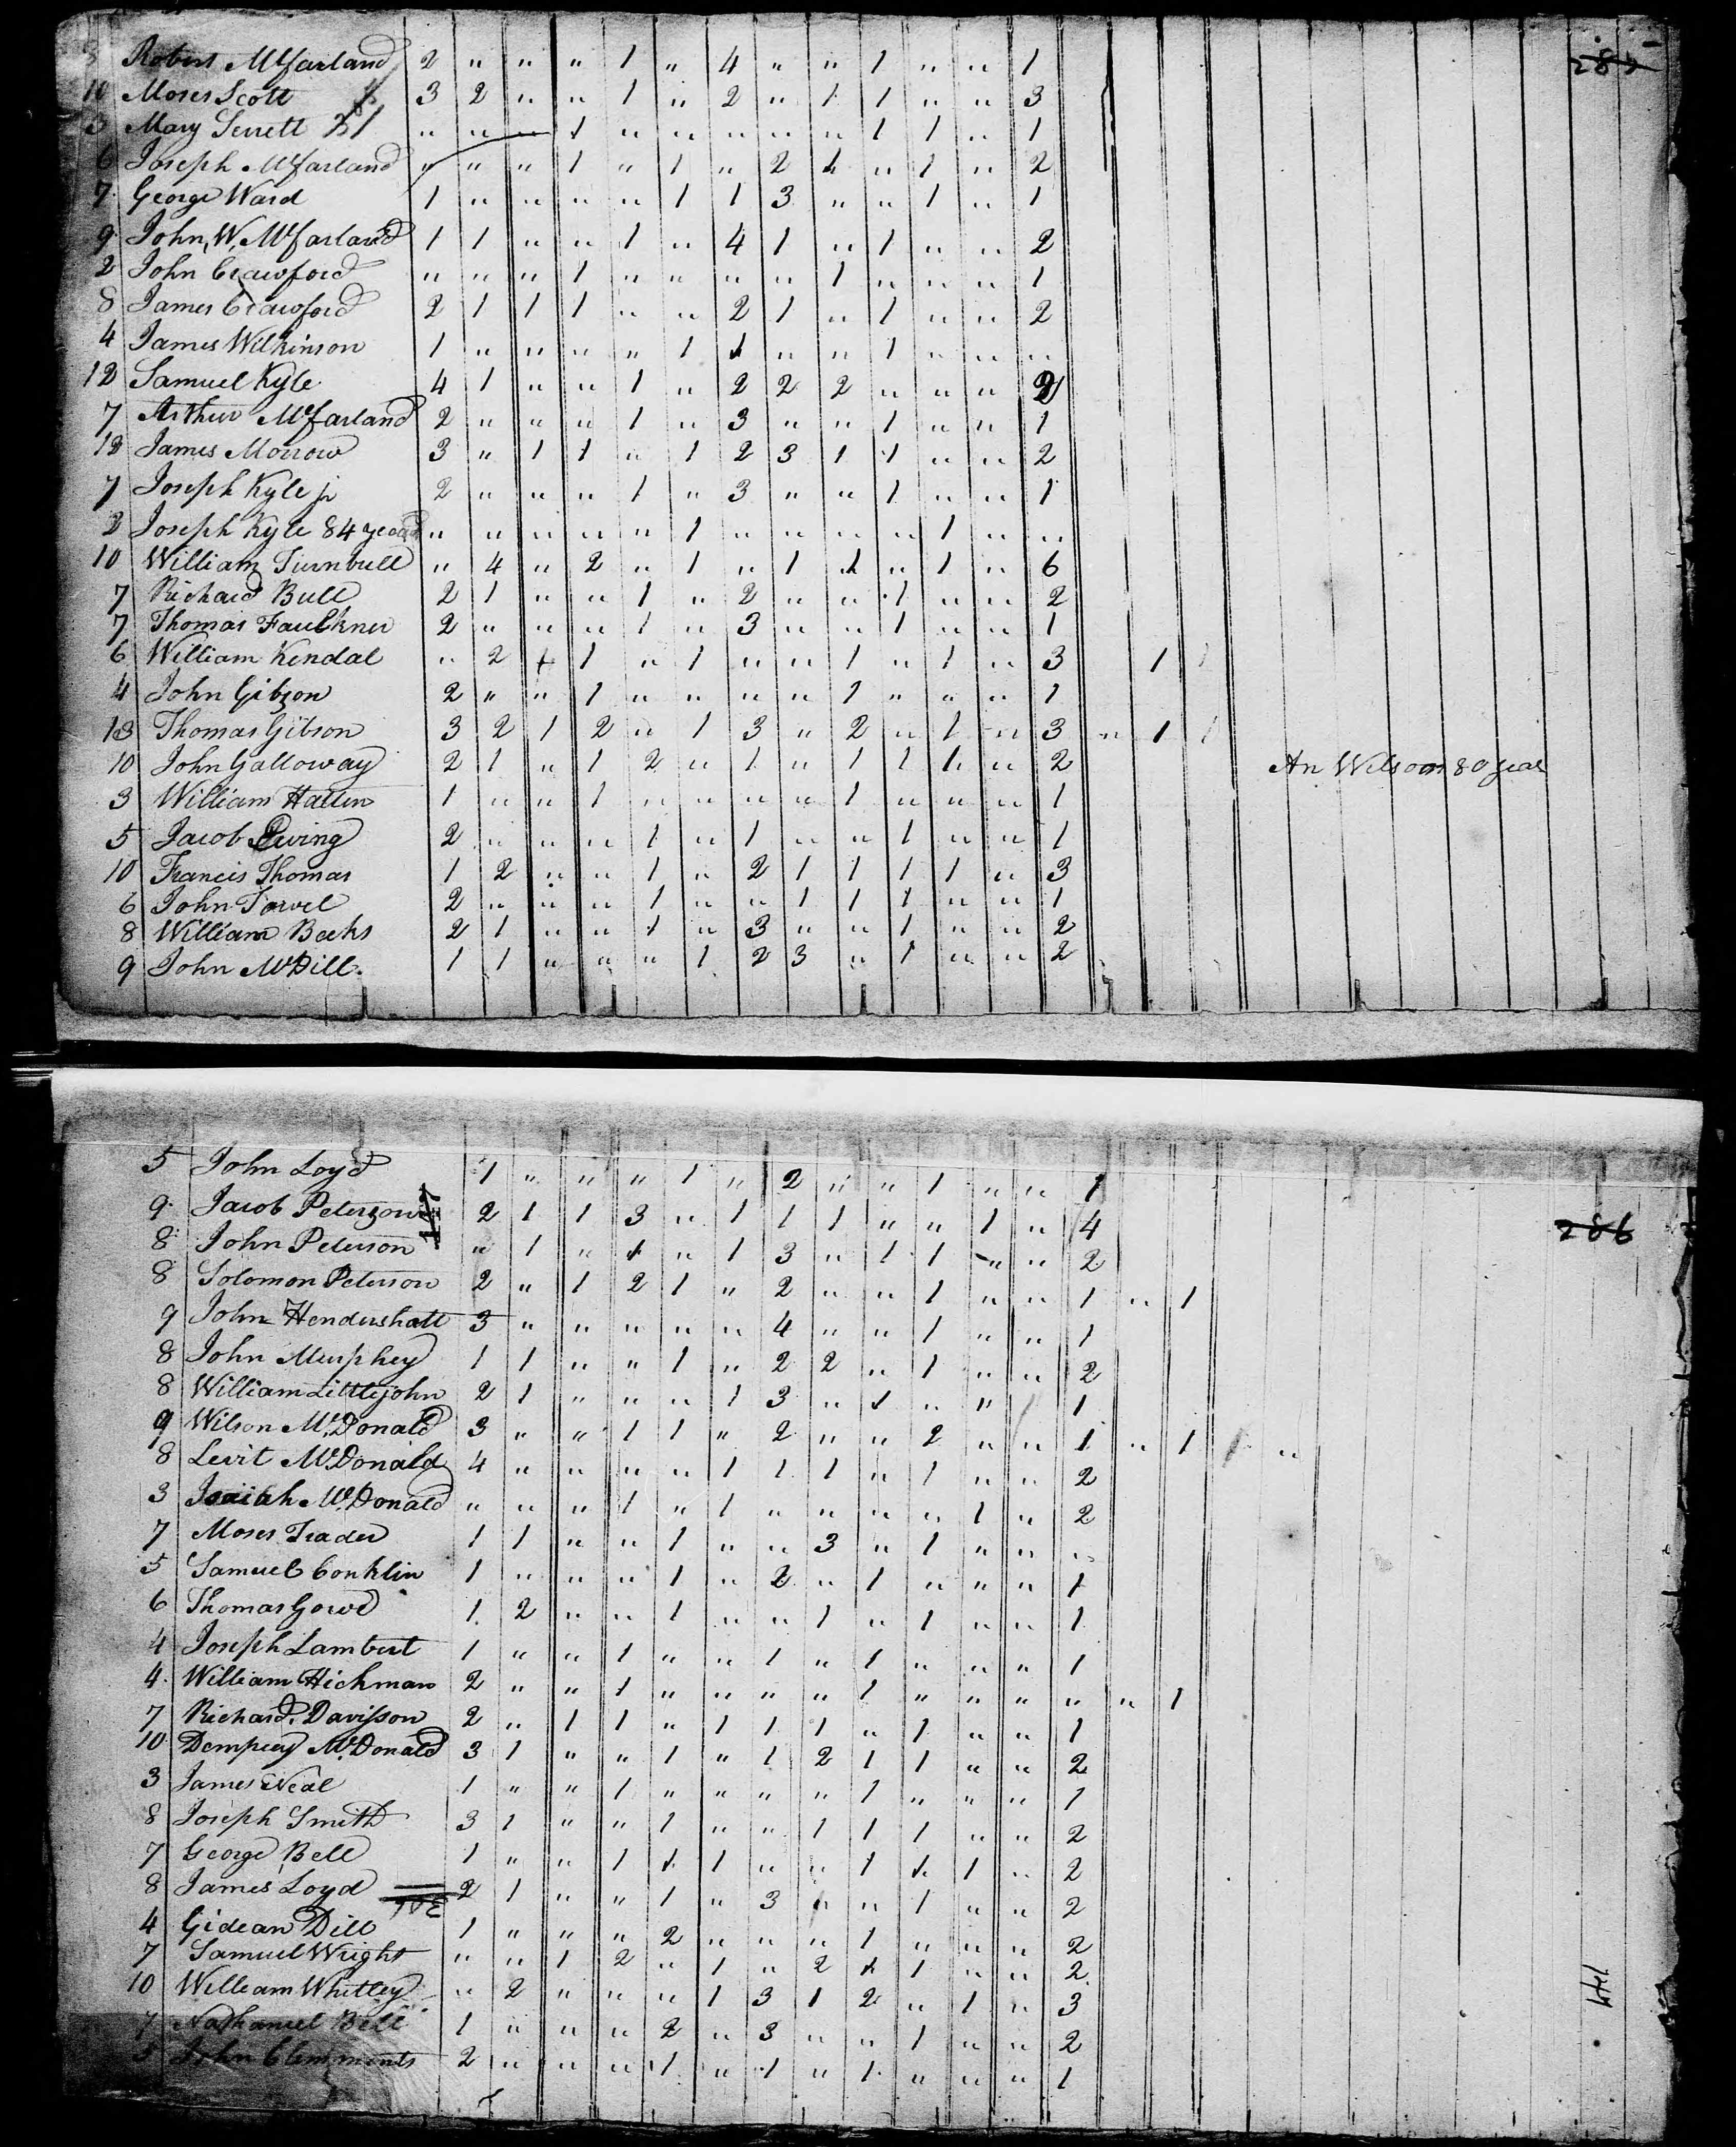 285
Robert McFarland 2 " " " 1 " 4 " " 1 " " 1
10 Moses Scott 3 2 " " 1 " 2 " 1 1 " " 3
3 Mary Serrett " " " 1 " " " " " 1 1 " 1
6 Joseph McFarland " " " 1 " 1 " 2 1 " 1 " 2
7 George Ward 1 " " " " 1 1 3 " " 1 " 1
9 John W. McFarland 1 1 " " 1 " 4 1 " 1 " " 2
2 John Crawford " " " 1 " " " " 1 " " " 1
8 James Crawford 2 1 1 1 " " 2 1 " 1 " " 2
4 James Wilkinson 1 " " " " 1 1 " " 1 " " "
12 Samuel Kyle 4 1 " " 1 " 2 2 2 " " " 2
7 Arthur McFarland 2 " " " 1 " 3 " " 1 " " 1
13 James Morrow 3 " 1 1 " 1 2 3 1 1 " " 2
7 Joseph Kyle jr 2 " " " 1 " 3 " " 1 " " 1
2 Joseph Kyle 84 years " " " " " 1 " " " " 1 " "
10 William Turnbull " 4 " 2 " 1 " 1 1 " 1 " 6
7 Richard Bull 2 1 " " 1 " 2 " " 1 " " 2
7 Thomas Faulkner 2 " " " 1 " 3 " " 1 " " 1
6 William Kendal " 2 1 1 " 1 " " 1 " 1 " 3 1
4 John Gibson 2 " " 1 " " " " 1 " " " 1
13 Thomas Gibson 3 2 1 2 " 1 3 " 2 " 1 " 3 " 1
10 John Galloway 2 1 " 1 2 " 1 " 1 1 1 " 2 An Wilson 80 year
3 William Hatten 1 " " 1 " " " " 1 " " " 1
5 Jacob Ewing 2 " " " 1 " 1 " " 1 " " 1
10 Francis Thomas 1 2 " " 1 " 2 1 1 1 1 " 3
6 John Towel 2 " " " 1 " " 1 1 1 " " 1
8 William Beeks 2 1 " " 1 " 3 " " 1 " " 2
9 John McDill 1 1 " " " 1 2 3 " 1 " " 2
5 John Loyd 1 " " " 1 " 2 " " 1 " " 1
9 Jacob Peterson 2 1 1 3 " 1 1 1 " " 1 " 4
286
8 John Peterson " 1 " 1 " 1 3 " 1 1 " " 2
8 Solomon Peterson 2 " 1 2 1 " 2 " " 1 " " 1 " 1
9 John Hendershatt 3 " " " " " 4 " " 1 " " 1
8 John Murphey 1 1 " " 1 " 2 2 " 1 " " 2
8 William Littlejohn 2 1 " " " 1 3 " 1 " " 1
9 Wilson McDonald 3 " " 1 1 " 2 " " 2 " " 1 " 1 1 "
8 Levit McDonald 4 " " " " 1 1 1 " 1 " " 2
3 Isaiah McDonald " " " 1 " 1 " " " " 1 " 2
7 Moses Trader 1 1 " " 1 " " 3 " 1 " " "
5 Samuel Conklin 1 " " " 1 " 2 " 1 " " " 1
6 Thomas Gowd 1 2 " " 1 " " 1 " 1 " " 1
4 Joseph Lambert 1 " " 1 " " 1 " 1 " " " 1
4 William Hickman 2 " " 1 " " " " 1 " " " " " 1
7 Richard Davisson 2 " 1 1 " 1 1 1 " 1 " " 1
10 Dempsey McDonald 3 1 " " 1 " 1 2 1 1 " " 2
3 James Neal 1 " " 1 " " " " 1 " " " 1
8 Joseph Smith 3 1 " " 1 " " 1 1 1 " " 2
7 George Bell 1 " " 1 1 1 " " 1 1 1 " 2
8 James Loyd 2 1 " " 1 " 3 " " 1 " " 2
4 Gidean Dill 1 " " " 2 " " " 1 " " " 2
7 Samuel Wright " " 1 2 " 1 " 2 1 1 " " 2
10 William Whitley " 2 " " " 1 3 1 2 " 1 " 3
7 Nathaniel Bell 1 " " " 2 " 3 " " 1 " " 2
5 John Clemments 2 " " " 1 " 1 " 1 " " " 1
144